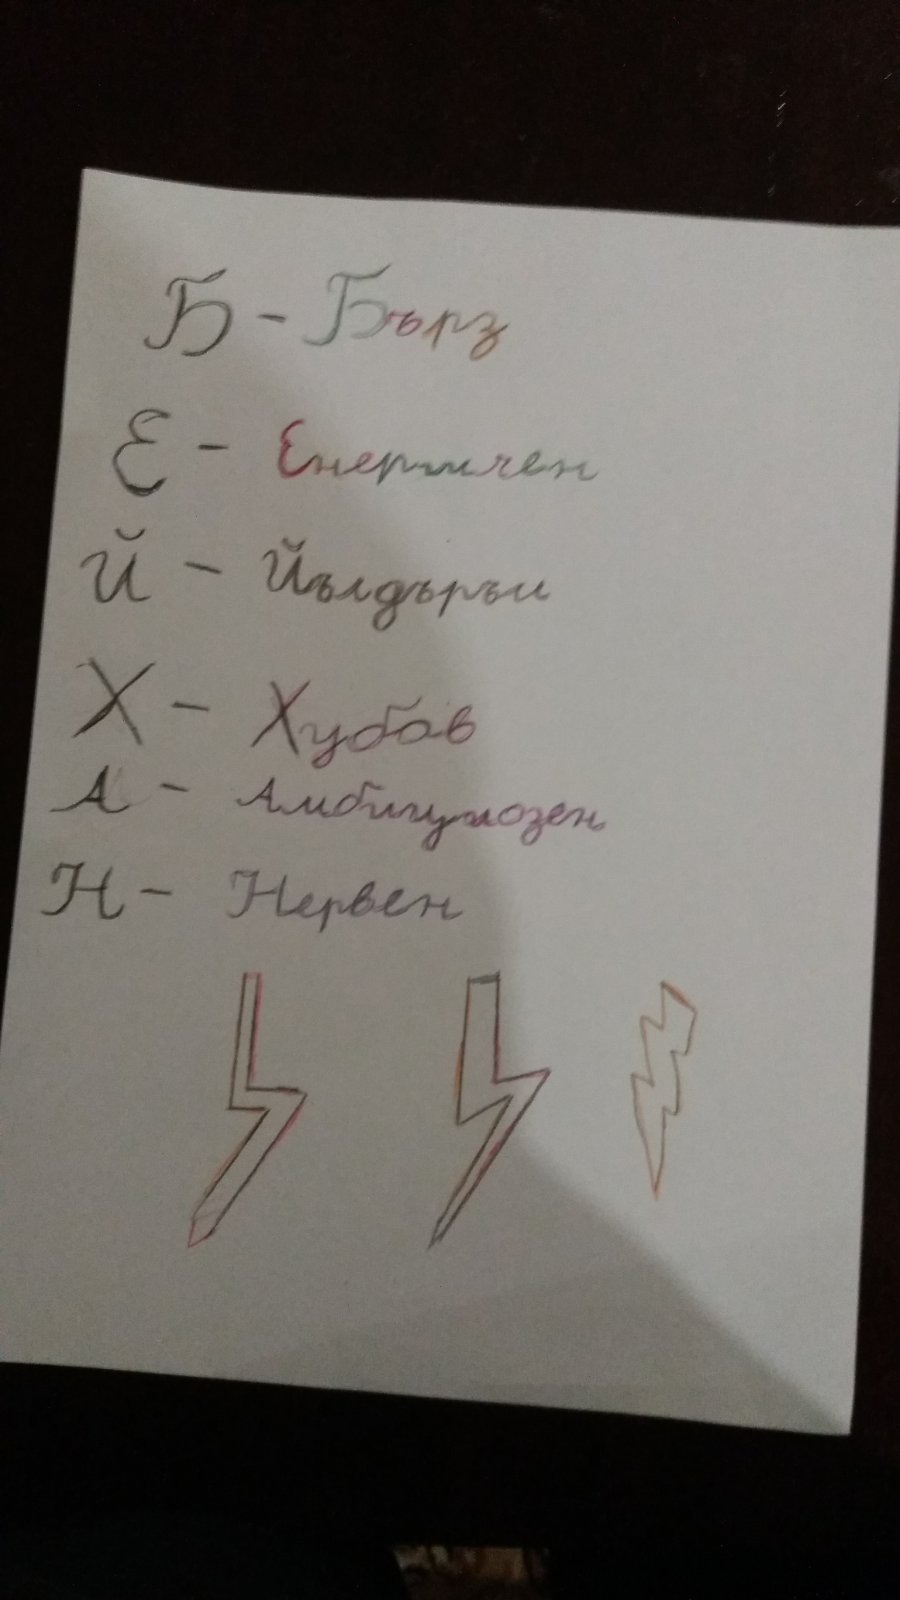 Б - Бърз
Е - Енергичен
Й - Йълдъръм
Х - Хубав
А - Амбициозен
Н - Нервен